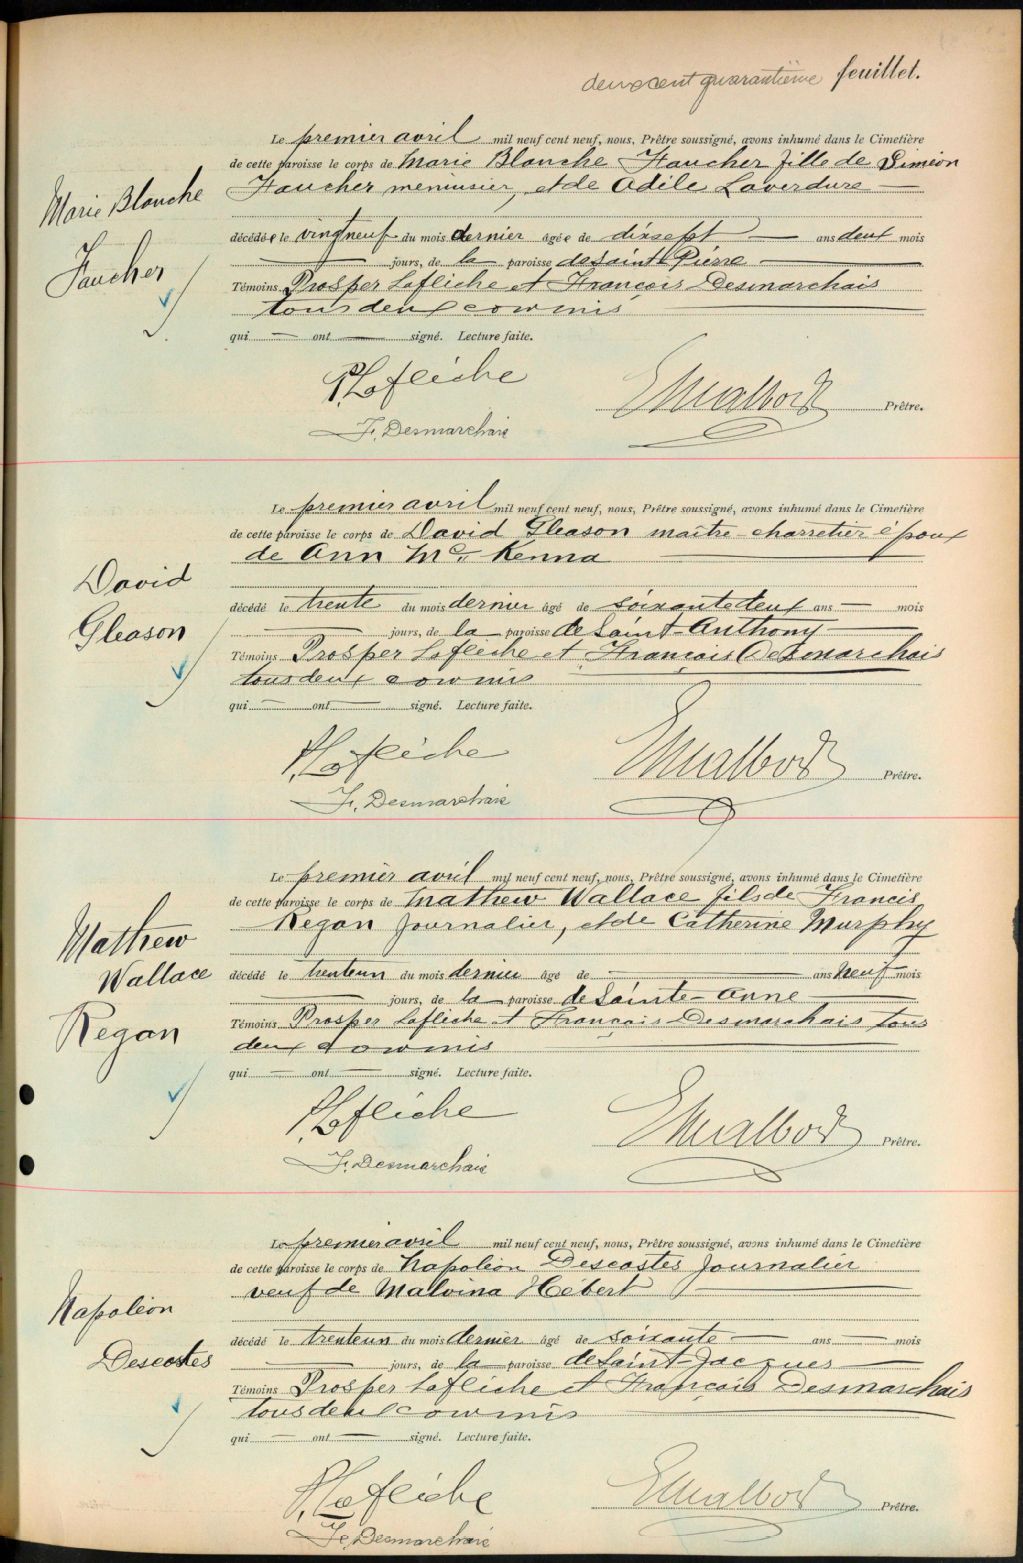 deux cent quarantième feuillet.
Le premier avril mil neuf cent neuf, nous, Prêtre soussigné, avons inhumé dans le Cimetière
de cette paroisse le corps de Marie Blanche Faucher fille de Siméon
Faucher menuisier, et de Odile Laverdure
Marie Blanche
Faucher
décédée le vingt neuf du mois dernier âgée de dixsept ans deux mois
jours, de la paroisse de Saint Pierre
Témoins Prosper Laflèche et François Desmarchais
tous deux commis
qui ont signé. Lecture faite.
P. Laflèche
F. Desmarchais
Prêtre.
Le premier avril mil neuf cent neuf, nous, Prêtre soussigné, avons inhumé dans le Cimetière
de cette paroisse le corps de David Gleason maître-charretier époux
de Ann Mc Kenna
David
Gleason
décédé le trente du mois dernier âgé de soixante deux ans mois
jours, de la paroisse de Saint-Anthony
Témoins Prosper Laflèche et François Desmarchais
tous deux commis
qui ont signé. Lecture faite.
P. Laflèche
F. Desmarchais
Prêtre.
Le premier avril mil neuf cent neuf, nous, Prêtre soussigné, avons inhumé dans le Cimetière
de cette paroisse le corps de Mathew Wallace fils de Francis
Regan journalier, et de Catherine Murphy
Mathew
Wallace
Regan
décédé le trente un du mois dernier âgé de ans neuf mois
jours, de la paroisse de Sainte-Anne
Témoins Prosper Laflèche et François Desmarchais tous
deux commis
qui ont signé. Lecture faite.
P. Laflèche
F. Desmarchais
Prêtre.
Le premier avril mil neuf cent neuf, nous, Prêtre soussigné, avons inhumé dans le Cimetière
de cette paroisse le corps de Napoléon Descostes journalier
veuf de Malvina Hébert
Napoléon
Descostes
décédé le trente un du mois dernier âgé de soixante ans mois
jours, de la paroisse de Saint-Jacques
Témoins Prosper Laflèche et François Desmarchais
tous deux commis
qui ont signé. Lecture faite.
P. Laflèche
F. Desmarchais
Prêtre.